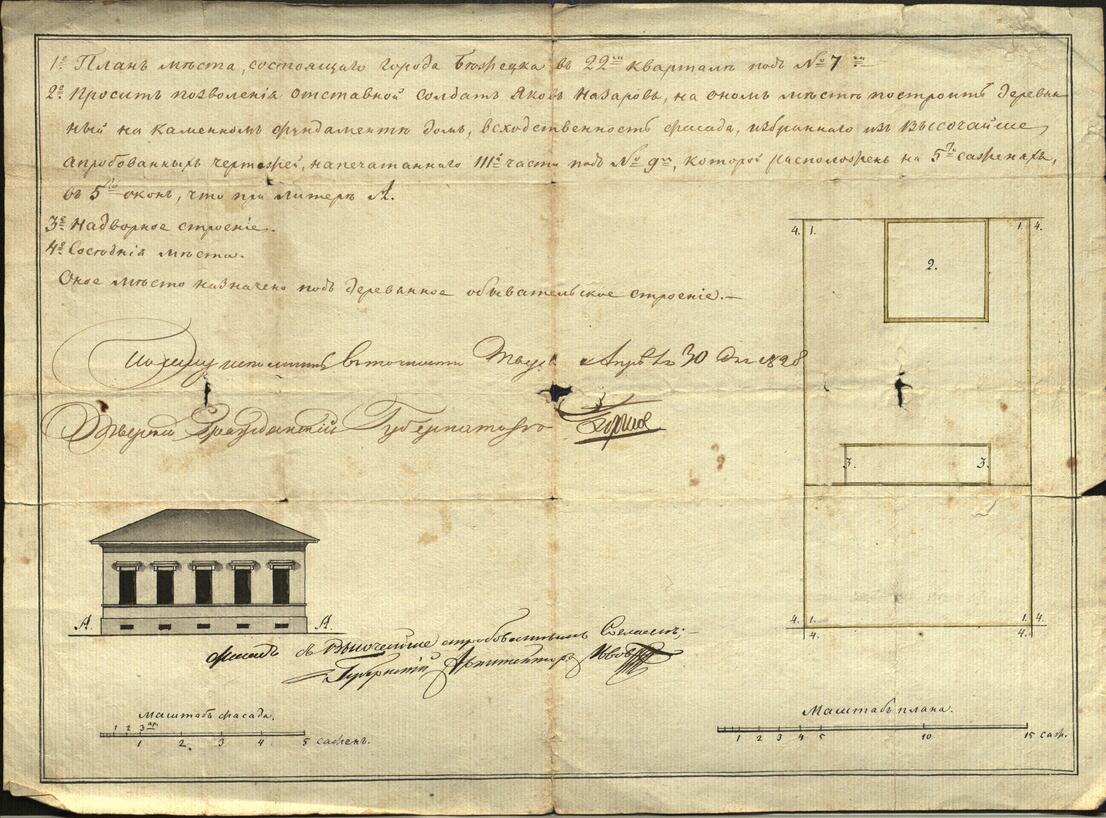 1е Планъ мѣста, состоящаго города Бѣжецка въ 22мъ кварталѣ подъ № 7мъ
2е Проситъ позволенія отставной солдатъ Яковъ Назаровъ, на ономъ мѣстѣ построить деревян
ный на каменномъ фундаментѣ домъ, всходственность фасада, избраннаго изъ Высочайше,
апробованныхъ чертежей, напечатаннаго IIIй части подъ № 9мъ, которой расположенъ на 5ти саженяхъ,
въ 5ть оконъ, что при литерѣ А.
3е Надворное строеніе.
4е Сосѣднія мѣста.
Оное мѣсто назначено подъ деревянное обывательское строеніе.
исполнить въ точности Апрѣля 30 дня 1828
Тверскій Гражданскій Губернаторъ
4. 1. 1. 4.
2.
3. 3.
4. 1. 1. 4.
4. 4.
А. А.
Фасадъ съ Высочайше апробованнымъ Согласенъ;
Губернскій Архитекторъ Львовъ
Маштабъ фасада.
1 2 3 ар:
1 2. 3 4 5 сажен.
Маштабъ плана.
1 2 3 4 5 10 15 саж.